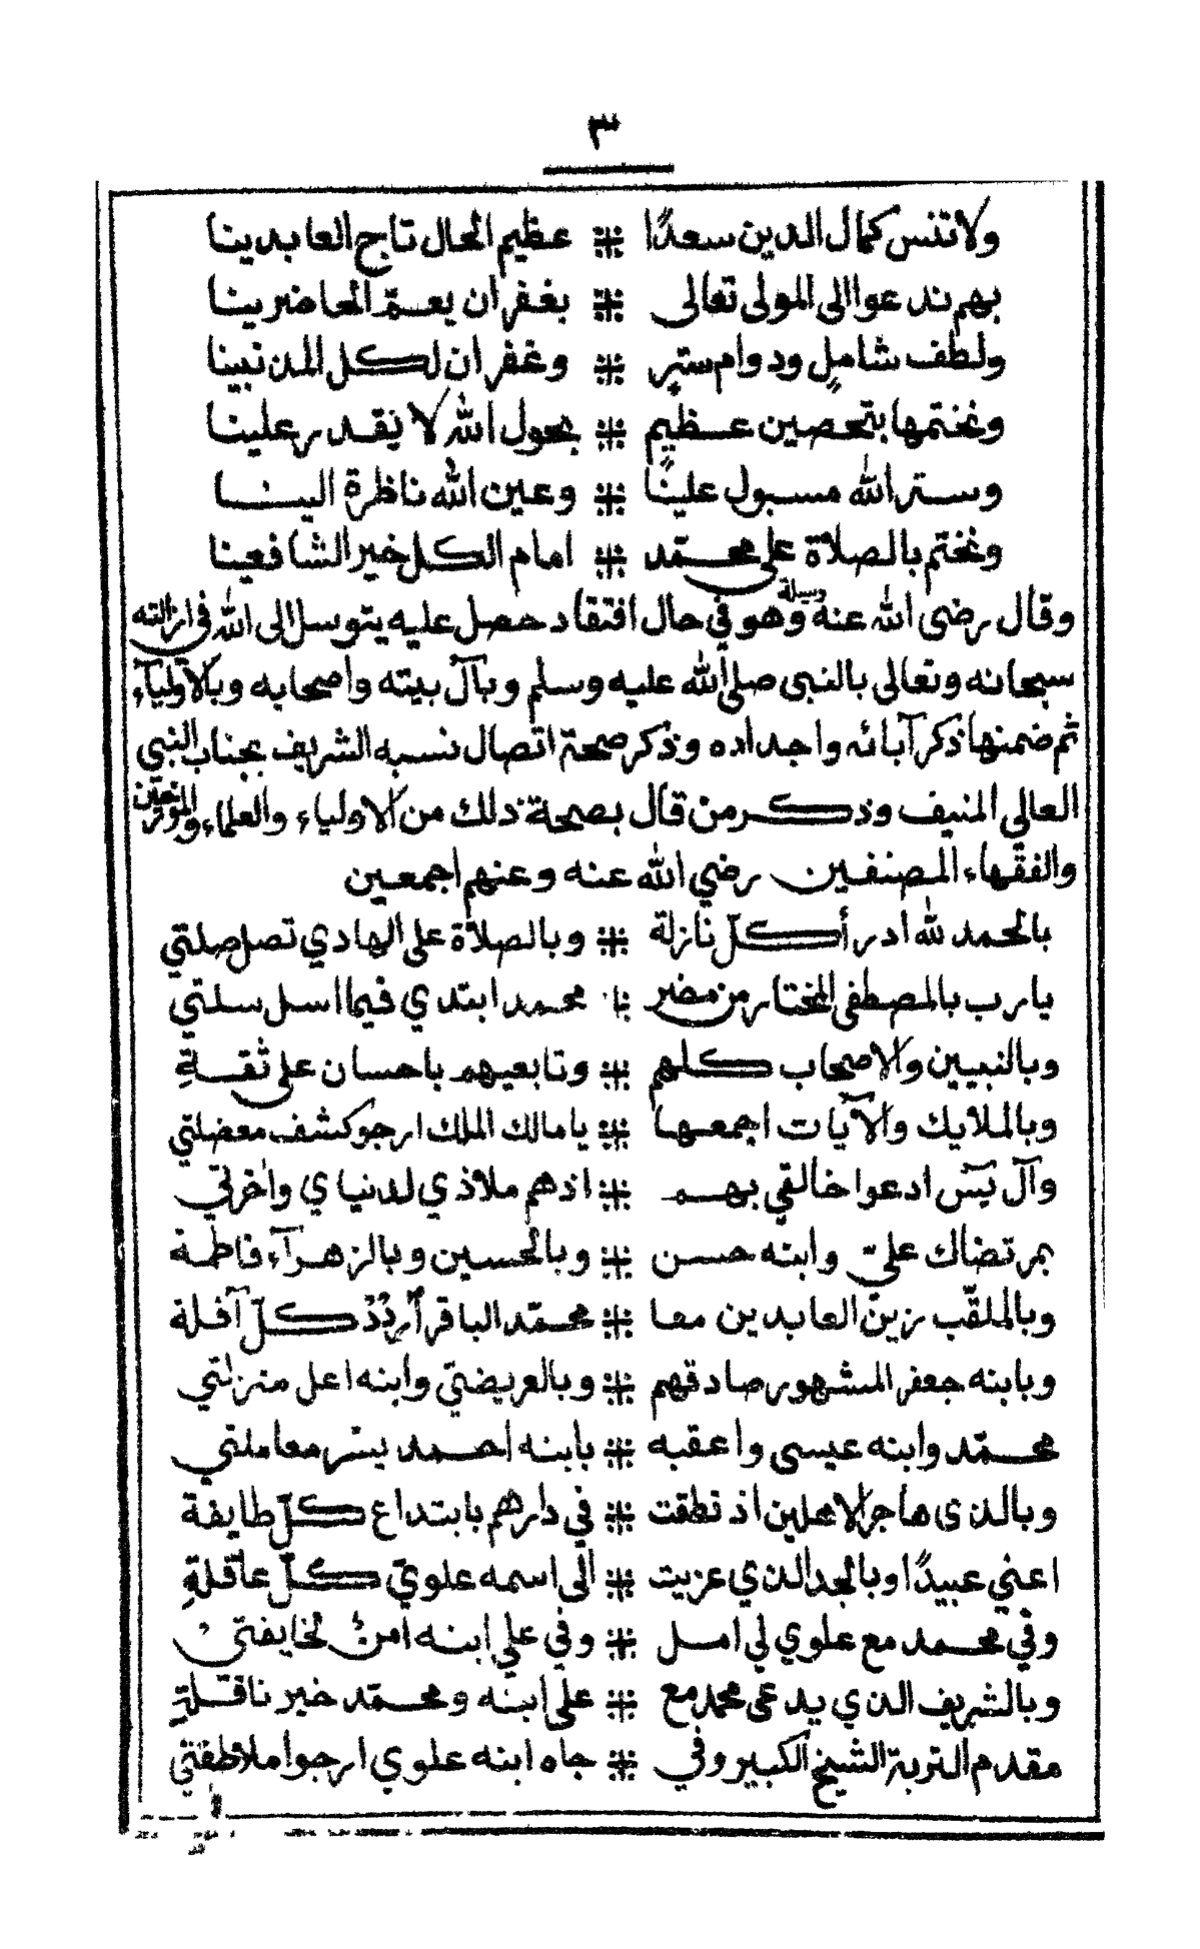 ٣
ولا تنس كمال الدين سعدًا ⁜ عظيم الحال تاج العابدينا
بهم ندعوا الى المولى تعالى ⁜ بغفران يعمّ الحاضرينا
ولطف شاملٍ ودوام سترٍ ⁜ وغفران لكل المذنبينا
ونختمها بتحصين عظيمٍ ⁜ بحول الله لا يقدر علينا
وستر الله مسبول علينا ⁜ وعين الله ناظرة الينا
ونختم بالصلاة على محمّد ⁜ امام الكل خير الشافعينا
وقال رضى الله عنه وسيلة وهو في حال افتقاد حصل عليه يتوسل الى الله في ازالته
سبحانه وتعالى بالنبى صلى الله عليه وسلم وبآل بيته واصحابه وبالاولياء
ثم ضمنها ذكر آبائه واجداده وذكر صحة اتصال نسبه الشريف بجناب النبي
العالي المنيف وذكر من قال بصحة ذلك من الاولياء والعلماء والمؤرخين
والفقهاء المصنفين رضي الله عنه وعنهم اجمعين
بالحمد لله أدرأ كلّ نازلة ⁜ وبالصلاة على الهادي تصل صلتي
يارب بالمصطفى المختار من مضر ⁜ محمد ابتدي فيما اسل سلتي
وبالنبيين والاصحاب كلهم ⁜ وتابعيهم باحسان على ثقةِ
وبالملايك والآيات اجمعها ⁜ يا مالك الملك ارجو كشف معضلتي
وآل يٓس ادعوا خالقي بهم ⁜ اذهم ملاذي لدنياي واخرتي
بمرتضاك عليّ وابنه حسن ⁜ وبالحسين وبالزهرآء فاطمة
وبالملقّب زين العابدين معا ⁜ محمّد الباقر أردُدْ كلّ آفلة
وبابنه جعفر المشهور صادقهم ⁜ وبالعريضيّ وابنه اعل منزلتي
محمّد وابنه عيسى واعقبه ⁜ بابنه احمد يسّر معاملتي
وبالذى هاجر الاهلين اذ نطقت ⁜ في دارهم بابتداع كلّ طايفة
اعني عبيدًا وبالجد الذي عزيت ⁜ الى اسمه علويّ كلّ عاقلةِ
وفي محمد مع علوي لي امل ⁜ وفي علي ابنه امنٌ لخايفتي
وبالشريف الذي يدعى محمد مع ⁜ على ابنه ومحمّد خير ناقلةِ
مقدم التربة الشيخ الكبير وفي ⁜ جاه ابنه علوي ارجوا ملاطفتي